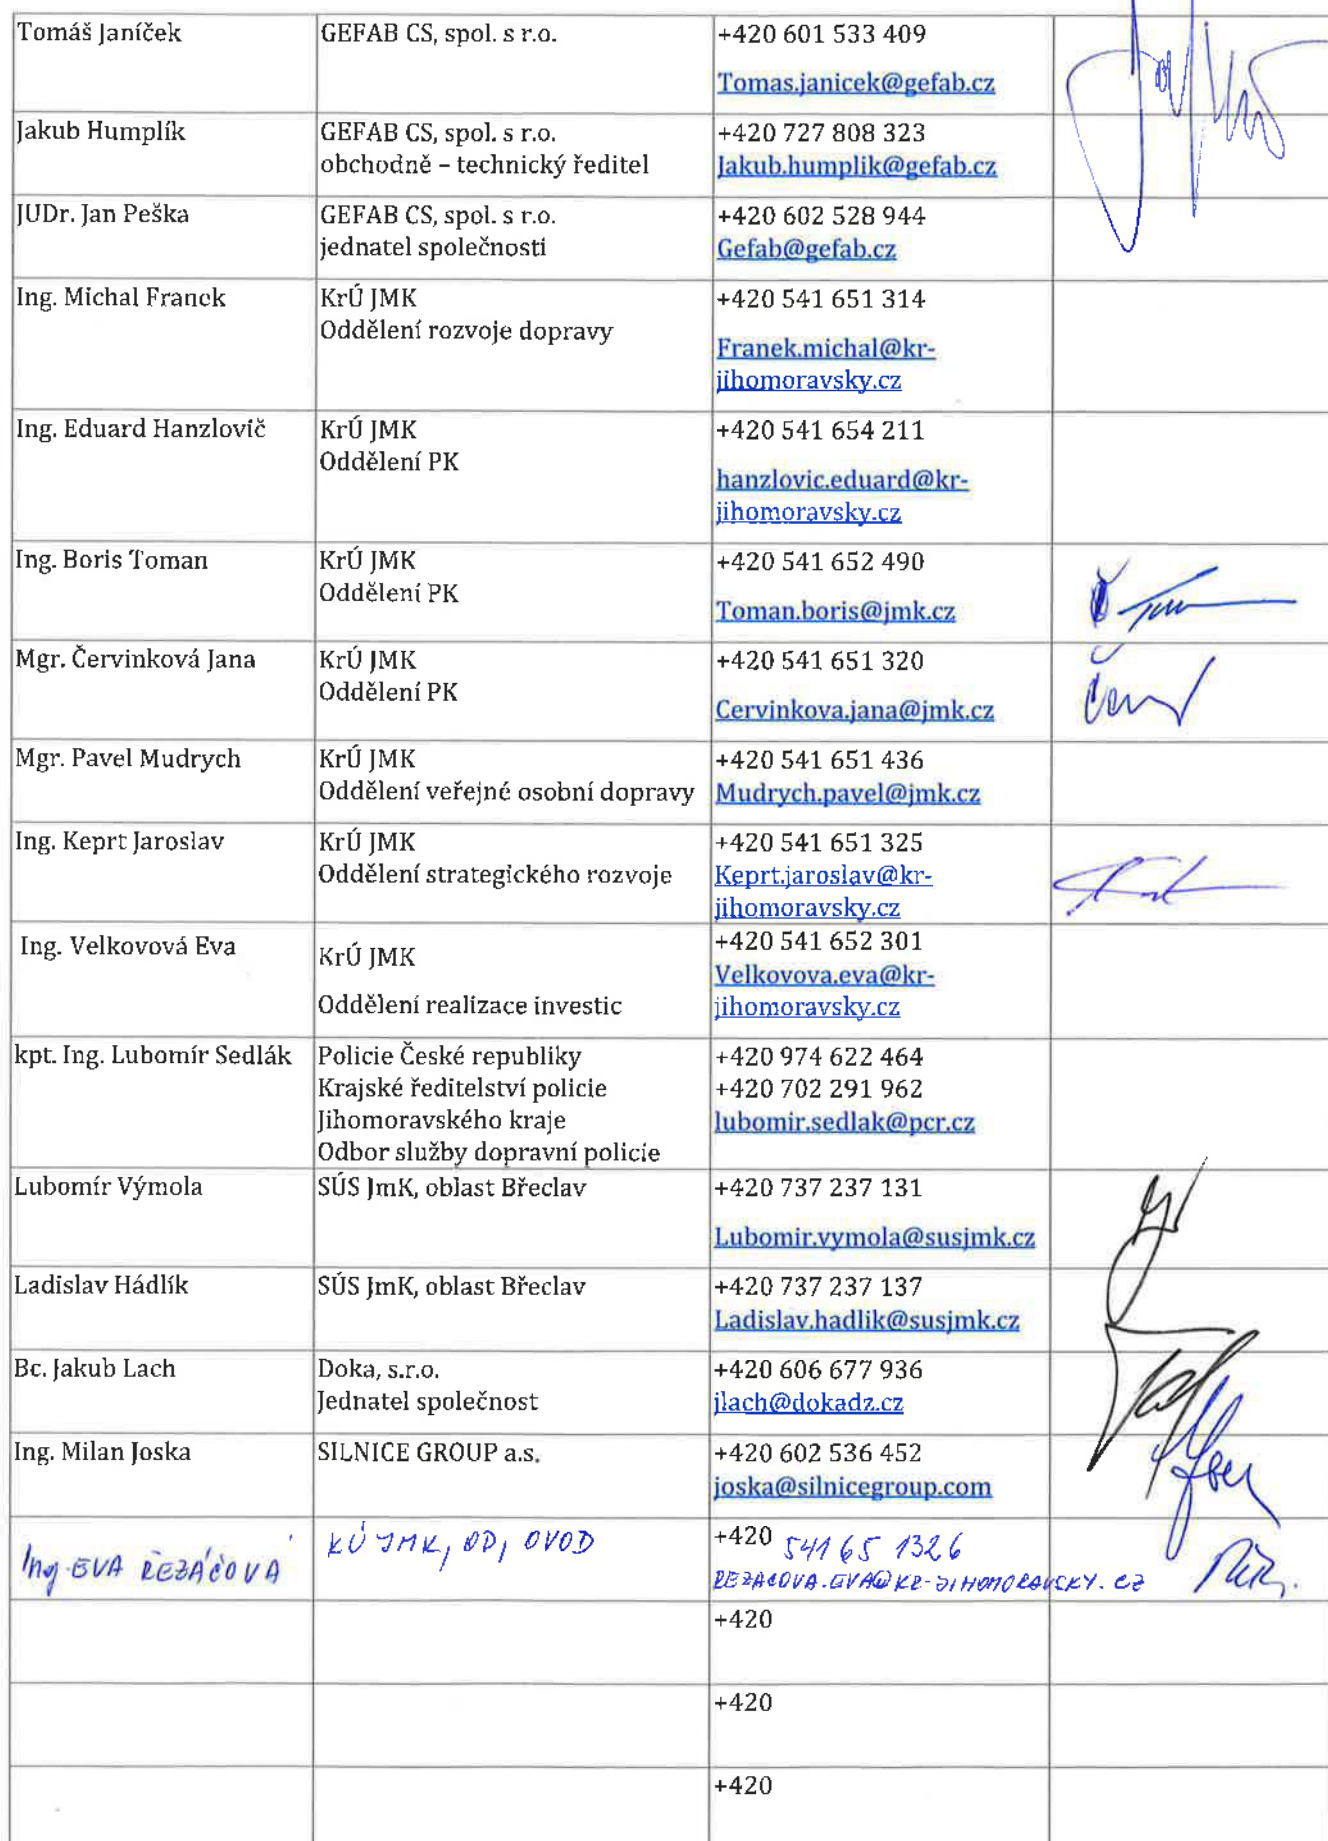 Tomáš Janíček
GEFAB CS, spol. s r.o.
+420 601 533 409
Tomas.janicek@gefab.cz
Jakub Humplík
GEFAB CS, spol. s r.o.
obchodně – technický ředitel
+420 727 808 323
Jakub.humplik@gefab.cz
JUDr. Jan Peška
GEFAB CS, spol. s r.o.
jednatel společnosti
+420 602 528 944
Gefab@gefab.cz
Ing. Michal Franek
KrÚ JMK
Oddělení rozvoje dopravy
+420 541 651 314
Franek.michal@kr-
jihomoravsky.cz
Ing. Eduard Hanzlovič
KrÚ JMK
Oddělení PK
+420 541 654 211
hanzlovic.eduard@kr-
jihomoravsky.cz
Ing. Boris Toman
KrÚ JMK
Oddělení PK
+420 541 652 490
Toman.boris@jmk.cz
Mgr. Červinková Jana
KrÚ JMK
Oddělení PK
+420 541 651 320
Cervinkova.jana@jmk.cz
Mgr. Pavel Mudrych
KrÚ JMK
Oddělení veřejné osobní dopravy
+420 541 651 436
Mudrych.pavel@jmk.cz
Ing. Keprt Jaroslav
KrÚ JMK
Oddělení strategického rozvoje
+420 541 651 325
Keprt.jaroslav@kr-
jihomoravsky.cz
Ing. Velkovová Eva
KrÚ JMK
Oddělení realizace investic
+420 541 652 301
Velkovova.eva@kr-
jihomoravsky.cz
kpt. Ing. Lubomír Sedlák
Policie České republiky
Krajské ředitelství policie
Jihomoravského kraje
Odbor služby dopravní policie
+420 974 622 464
+420 702 291 962
lubomir.sedlak@pcr.cz
Lubomír Výmola
SÚS JmK, oblast Břeclav
+420 737 237 131
Lubomir.vymola@susjmk.cz
Ladislav Hádlík
SÚS JmK, oblast Břeclav
+420 737 237 137
Ladislav.hadlik@susjmk.cz
Bc. Jakub Lach
Doka, s.r.o.
Jednatel společnost
+420 606 677 936
jlach@dokadz.cz
Ing. Milan Joska
SILNICE GROUP a.s.
+420 602 536 452
joska@silnicegroup.com
Ing. EVA ŘEZÁČOVÁ
KÚ JMK, OD, OVOD
+420 541 65 1326
REZACOVA.EVA@KR-JIHOMORAVSKY.CZ
+420
+420
+420